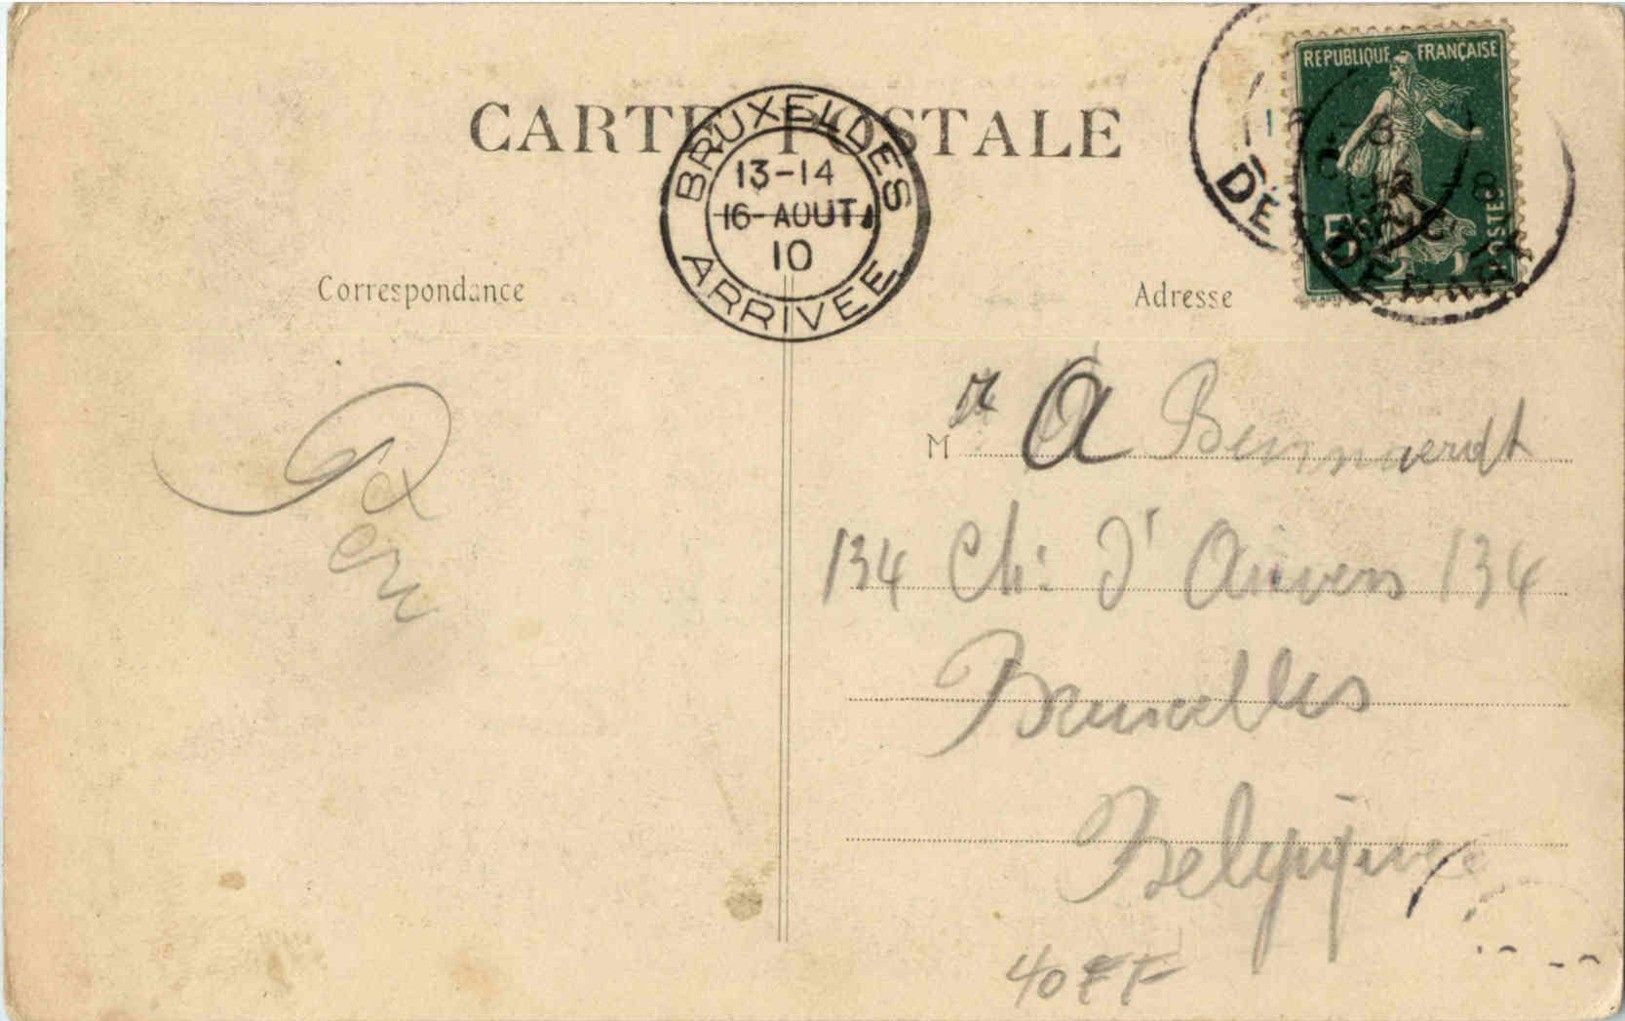 CARTE POSTALE
BRUXELLES
13-14
16-AOUT
10
ARRIVEE
REPUBLIQUE FRANÇAISE
POSTES
5
Correspondance
Adresse
M r A
134 Ch: d'Anvers 134
Bruxelles
Belgique
40 FF